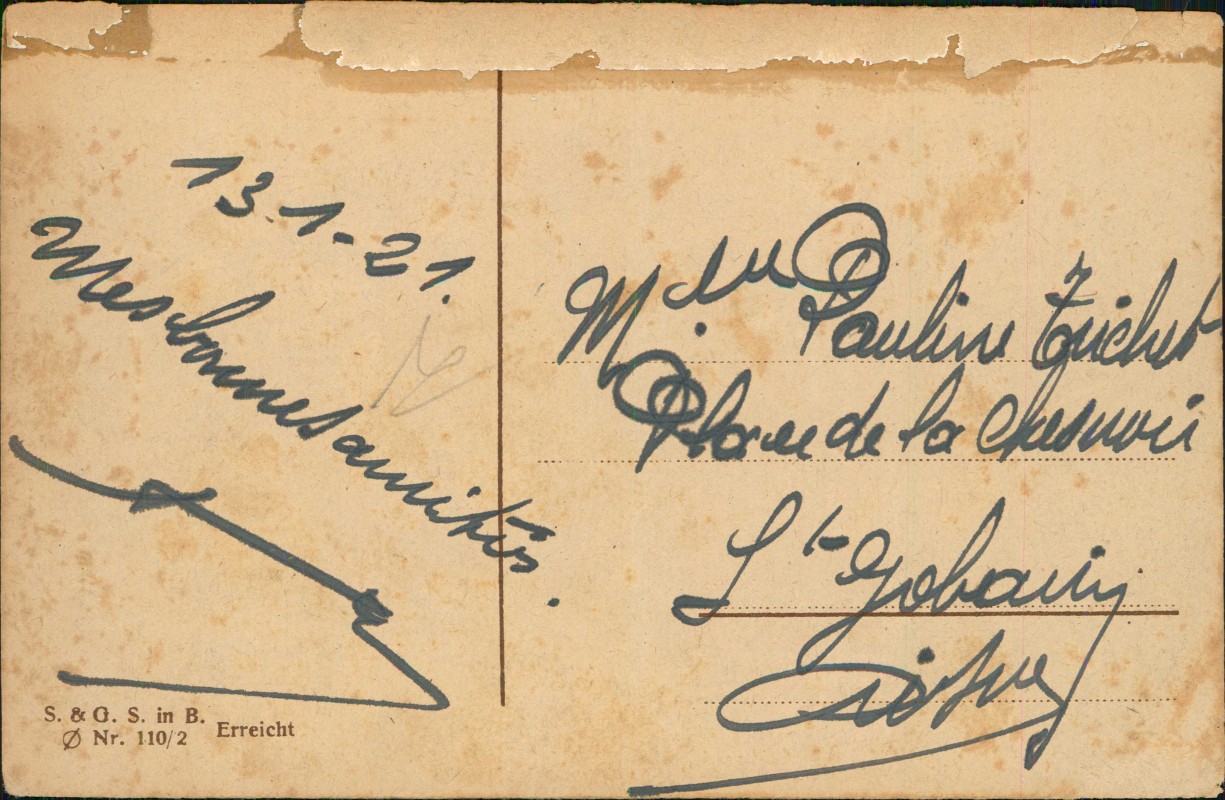 13-1-21.
Mes bonnes amitiés.
S. & G. S. in B.
Nr. 110/2
Erreicht
Melle Pauline
Place de la
St Gobain
Aisne